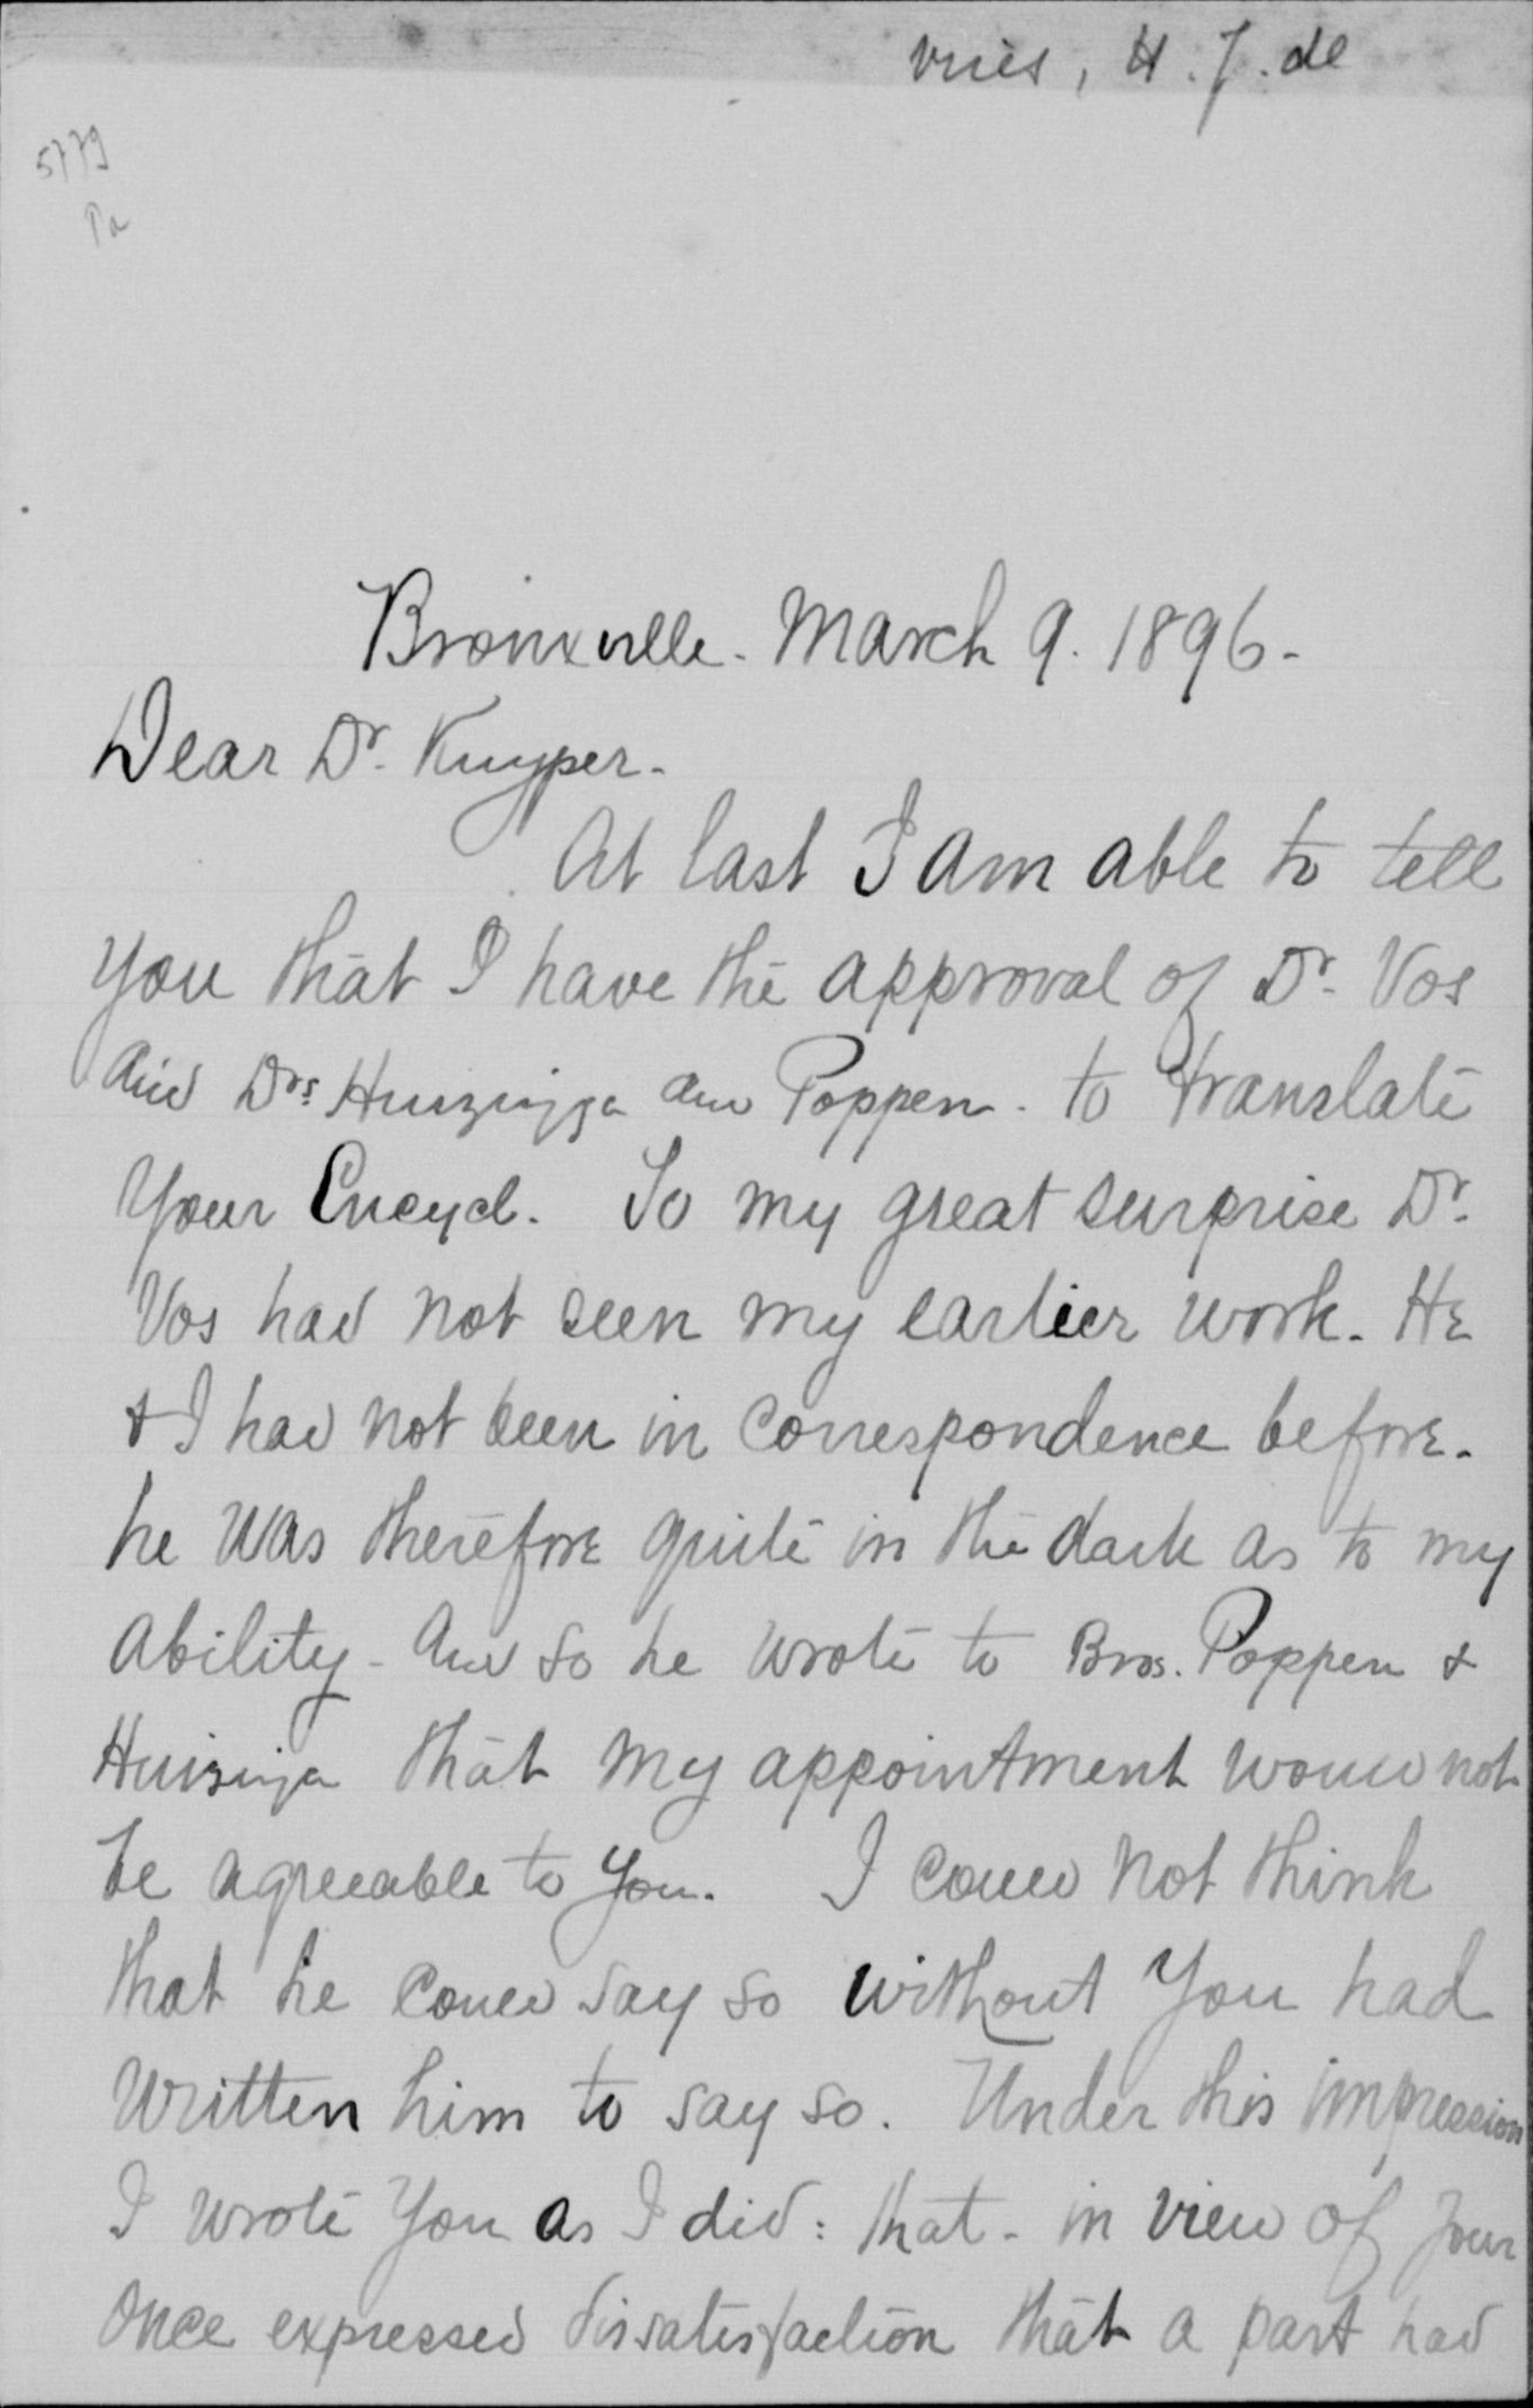 Vries, H. J. de
5779
Pa
Bronxville - March 9. 1896 -
Dear Dr. Kuyper -
At last I am able to tell
you that I have the approval of Dr. Vos
and Drs. Huizinga and Poppen - to translate
your Encycl. To my great surprise Dr.
Vos had not seen my earlier work. He
& I had not been in correspondence before -
he was therefore quite in the dark as to my
ability - and so he wrote to Bros. Poppen &
Huizinga that my appointment would not
be agreeable to you. I could not think
that he could say so without you had
written him to say so. Under this impression
I wrote you as I did: that - in view of your
once expressed dissatisfaction that a part had